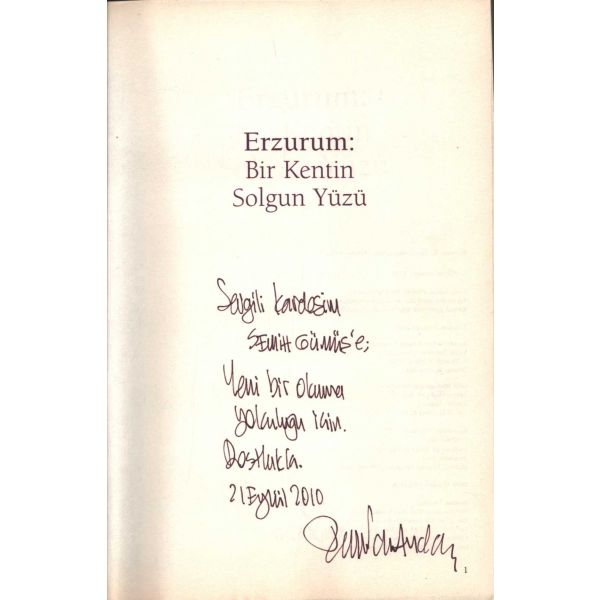 Erzurum:
Bir Kentin
Solgun Yüzü
Sevgili kardeşim
SEMİH GÜMÜŞ'e;
Yeni bir okuma
yolculuğu için.
Dostlukla.
21 Eylül 2010
1